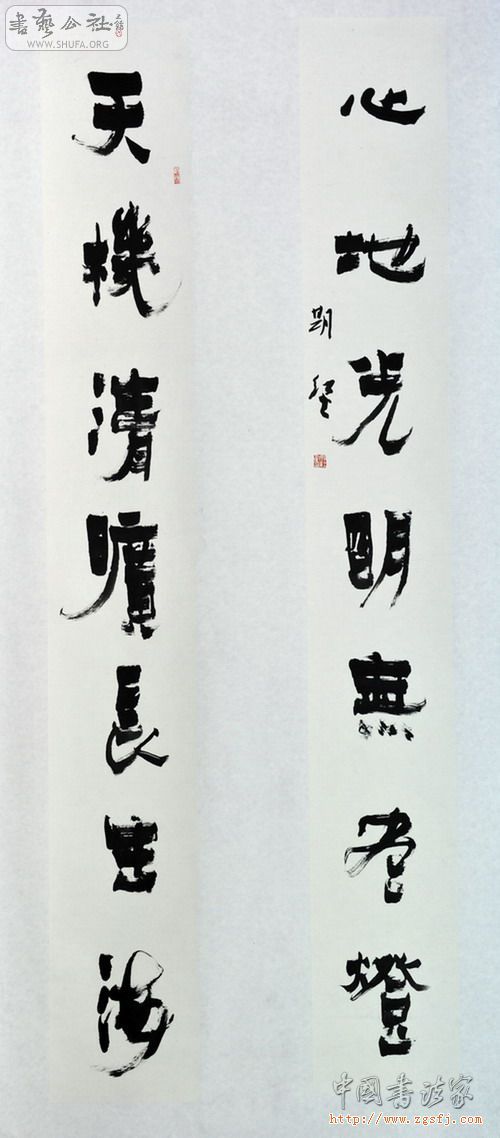 書藝公社
WWW.SHUFA.ORG
天機清曠長生海
心地光明無尽燈
中國書法家
http://www.zgsfj.com